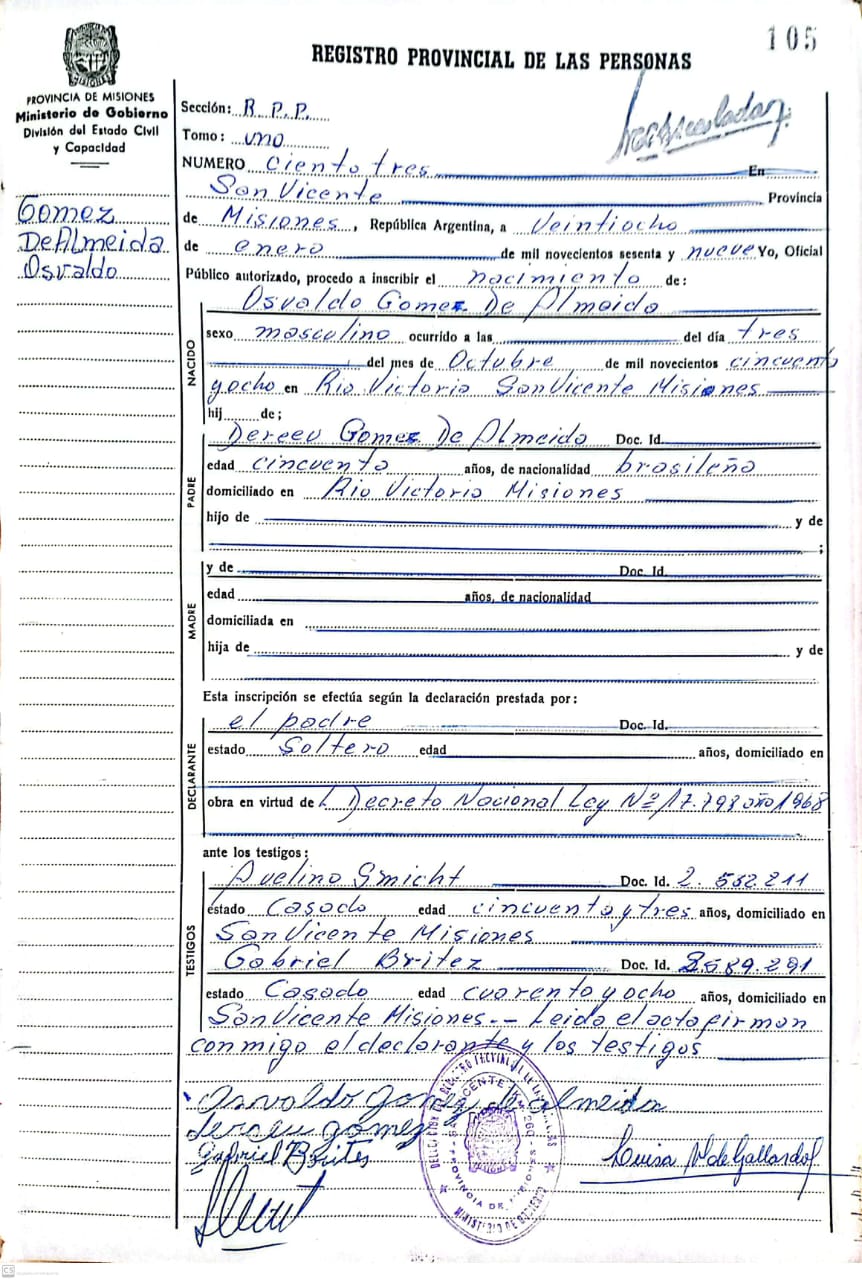 105
REGISTRO PROVINCIAL DE LAS PERSONAS
PROVINCIA DE MISIONES
Ministerio de Gobierno
División del Estado Civil
y Capacidad
Gomez
De Almeida
Osvaldo
Sección: R.P.P.
Tomo: uno
NUMERO Ciento tres En
San Vicente Provincia
de Misiones, República Argentina, a Veintiocho
de enero de mil novecientos sesenta y nueve Yo, Oficial
Público autorizado, procedo a inscribir el nacimiento de:
Osvaldo Gomez De Almeida
NACIDO
sexo masculino ocurrido a las del día tres
del mes de Octubre de mil novecientos cincuenta
y ocho en Rio Victoria San Vicente Misiones
hij de;
PADRE
Dereeu Gomez De Almeida Doc. Id.
edad cincuenta años, de nacionalidad brasileña
domiciliado en Rio Victoria Misiones
hijo de y de
;
MADRE
y de Doc. Id.
edad años, de nacionalidad
domiciliada en
hija de y de
Esta inscripción se efectúa según la declaración prestada por:
DECLARANTE
el padre Doc. Id.
estado Soltero edad años, domiciliado en
obra en virtud de l Decreto Nacional Ley Nº 17.793 año 1968
ante los testigos:
TESTIGOS
Avelino Smicht Doc. Id. 2.532.211
estado Casado edad cincuenta y tres años, domiciliado en
San Vicente Misiones
Gabriel Britez Doc. Id. 2589.291
estado Casado edad cuarenta y ocho años, domiciliado en
San Vicente Misiones -- Leida el acta firman
conmigo el declarante y los testigos
Osvaldo Gomez de almeida
Gabriel Brites
Luisa V. de Gallardo
PROVINCIA DE MISIONES
MINISTERIO DE GOBIERNO
CS